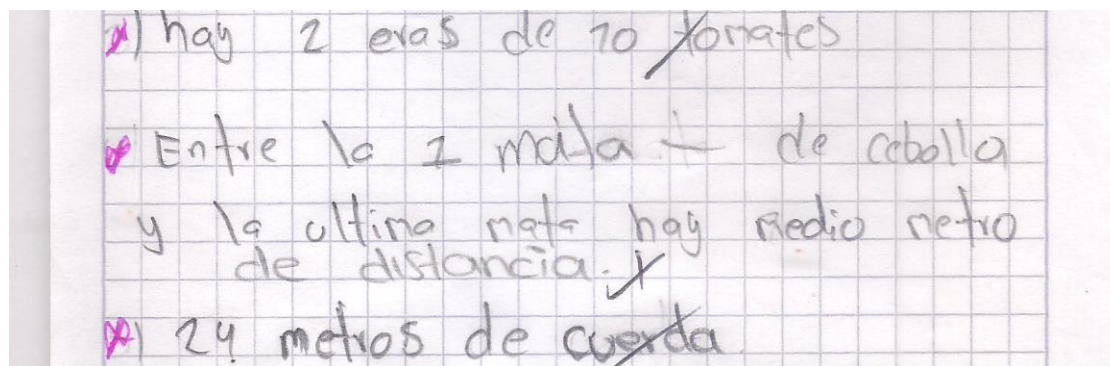 hay 2 eras de 10 tomates
Entre la 1 mata de cebolla
y la ultima mata hay medio metro
de distancia.
24 metros de cuerda